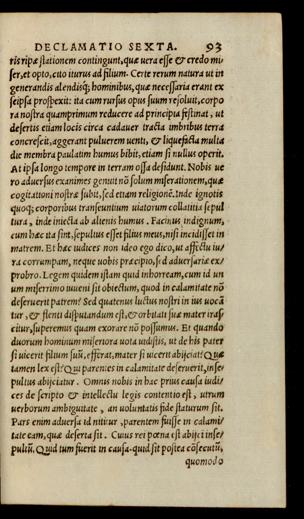 DECLAMATIO SEXTA. 93
ris ripæ stationem contingunt, quæ uera esse & credo mi/
ser, et opto, cito iturus ad filium. Certe rerum natura ut in
generandis alendisq; hominibus, quæ necessaria erant ex
seipsa prospexit: ita cum rursus opus suum resoluit, corpo
ra nostra quamprimum reducere ad principia festinat, ut
desertis etiam locis circa cadauer tracta imbribus terra
concrescit, aggerant puluerem uenti, & liquefacta multa
die membra paulatim humus bibit, etiam si nullus operit.
At ipsa longo tempore in terram ossa desidunt. Nobis ue
ro aduersus exanimes genuit nõ solum miserationem, quæ
cogitationi nostræ subit, sed etiam religionẽ. Inde ignotis
quoq; corporibus transeuntium uiatorum collatitia sepul
tura, inde iniecta ab alienis humus. Facinus indignum,
cum hæc ita sint, sepultus esset filius meus, nisi incidisset in
matrem. Et hæc iudices non ideo ego dico, ut affectu iu/
ra corrumpam, neque uobis præcipio, sed aduersariæ ex/
probro. Legem quidem istam quid inhorream, cum id un
um miserrimo iuueni sit obiectum, quod in calamitate nõ
deseruerit patrem? Sed quatenus luctus nostri in ius uocã
tur, & flenti disputandum est, & orbitati suæ mater iras/
citur, superemus quam exorare nõ possumus. Et quando
duorum hominum miseriora uota uidistis, ut de his pater
si uicerit filium suũ, efferat, mater si uicerit abijciat: Quæ
tamen lex est? Qui parentes in calamitate deseruerit, inse/
pultus abijciatur. Omnus nobis in hac prius causa iudi/
ces de scripto & intellectu legis contentio est, utrum
uerborum ambiguitate, an uoluntatis fide staturum sit.
Pars enim aduersa id nititur, parentem fuisse in calami/
tate eam, quæ deserta sit. Cuius rei pœna est abijci inse/
pultũ. Quid tum fuerit in causa, quid sit postea cõsecutũ,
quomodo